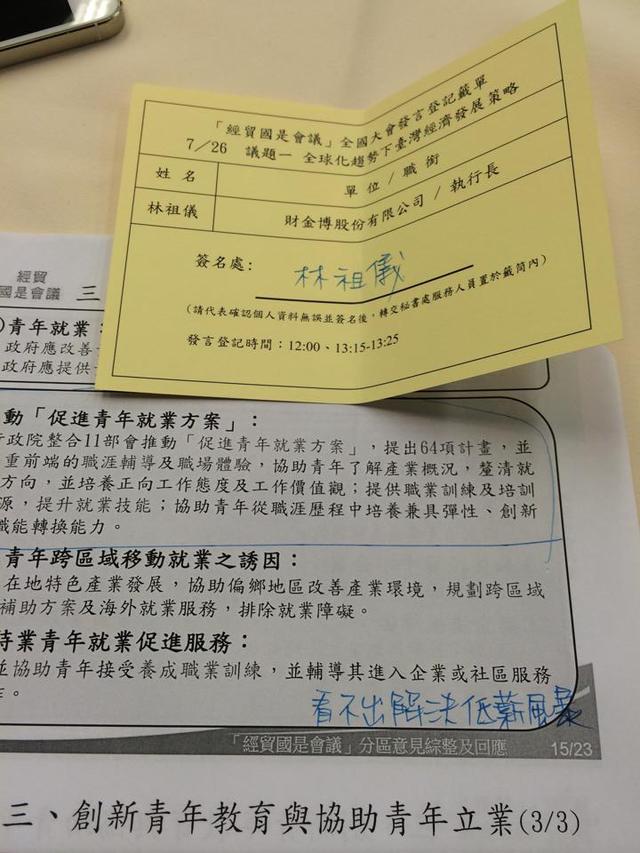 「經貿國是會議」全國大會發言登記籤單
7／26 議題一 全球化趨勢下臺灣經濟發展策略
姓名
單位 / 職銜
林祖儀
財金博股份有限公司 / 執行長
簽名處：
林祖儀
（請代表確認個人資料無誤並簽名後，轉交秘書處服務人員置於籤筒內）
發言登記時間：12:00、13:15-13:25
經貿
國是會議
三
)青年就業：
政府應改善
政府應提供
動「促進青年就業方案」：
行政院整合11部會推動「促進青年就業方案」，提出64項計畫，並
重前端的職涯輔導及職場體驗，協助青年了解產業概況，釐清就
方向，並培養正向工作態度及工作價值觀；提供職業訓練及培訓
源，提升就業技能；協助青年從職涯歷程中培養兼具彈性、創新
職能轉換能力。
青年跨區域移動就業之誘因：
在地特色產業發展，協助偏鄉地區改善產業環境，規劃跨區域
補助方案及海外就業服務，排除就業障礙。
待業青年就業促進服務：
並協助青年接受養成職業訓練，並輔導其進入企業或社區服務
。
看不出解決低薪風暴
「經貿國是會議」分區意見綜整及回應
15/23
三、創新青年教育與協助青年立業(3/3)